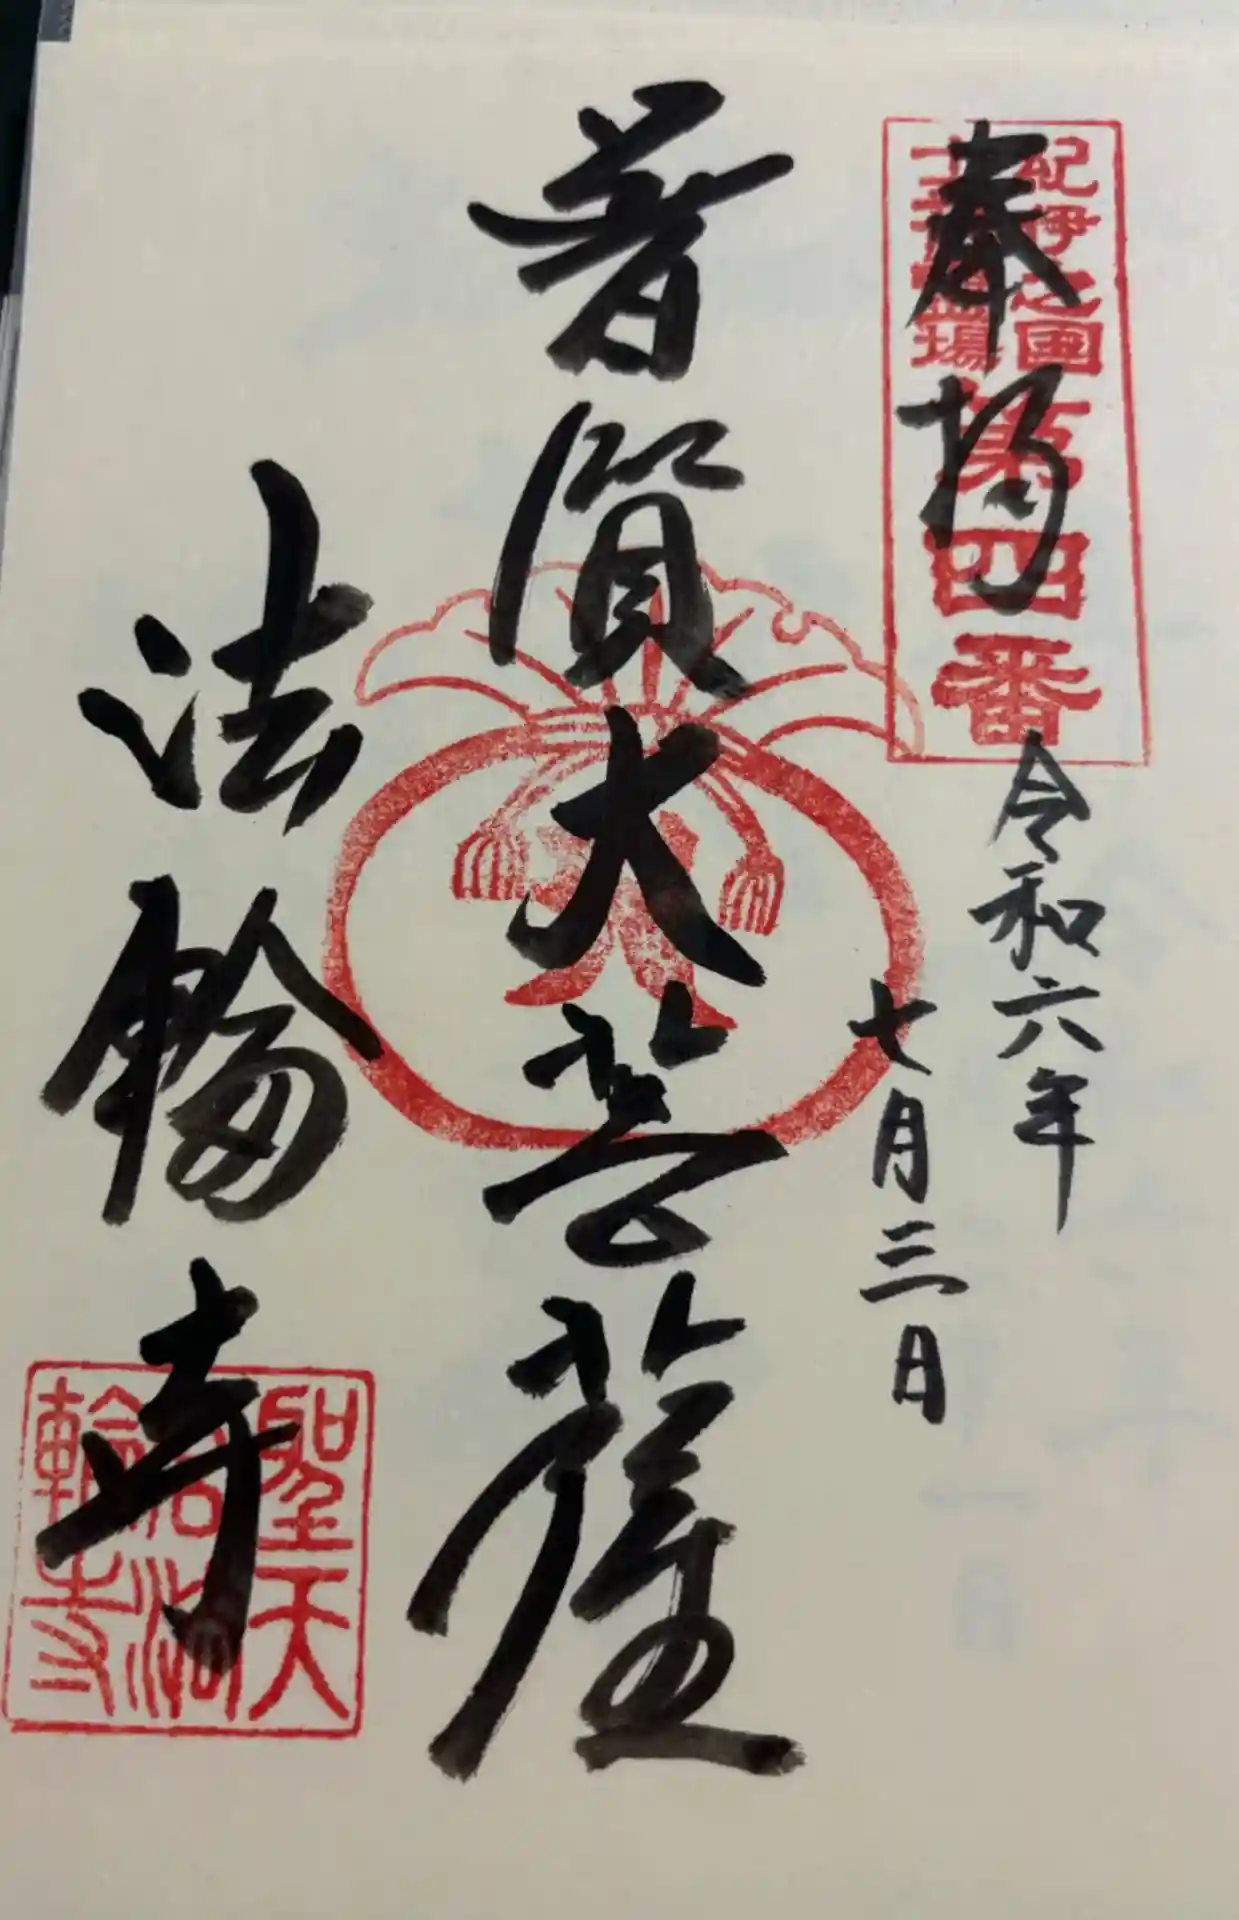 紀伊之國
十三佛霊場
第四番
奉拝
令和六年
七月三日
普賢大菩薩
法輪寺
聖天
宮法
輪寺